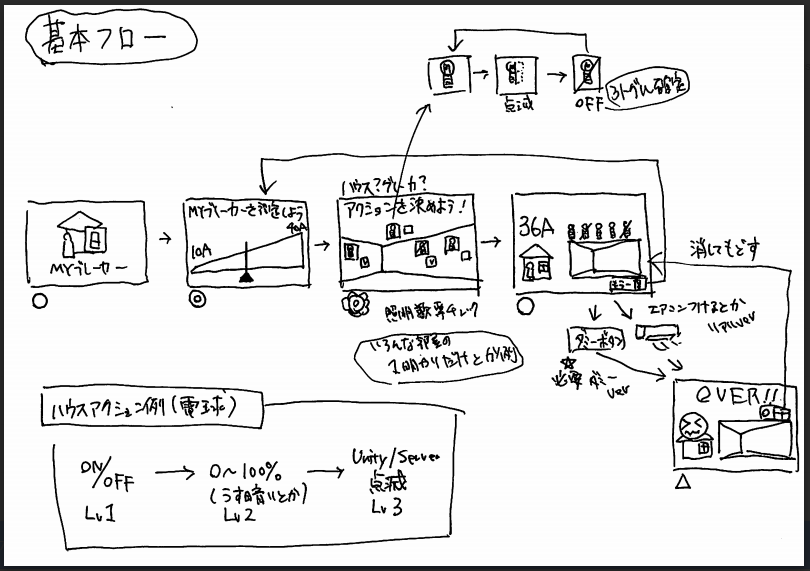 基本フロー
点滅
OFF
3トグル確定
MYブレーカー
MYブレーカーを設定しよう
40A
10A
ハウス?ブレーカ?
アクションを決めよう!
照明効率チェック
いろんな部屋の
1明かりだけと分ける
36A
消してもどす
エアコンつけるとか
リアルver
ダミーボタン
必要ダミー
ver
OVER!!
ハウスアクション例(電球)
ON/OFF
Lv1
0~100%
(うす暗いとか)
Lv2
Unity/Server
点滅
Lv3